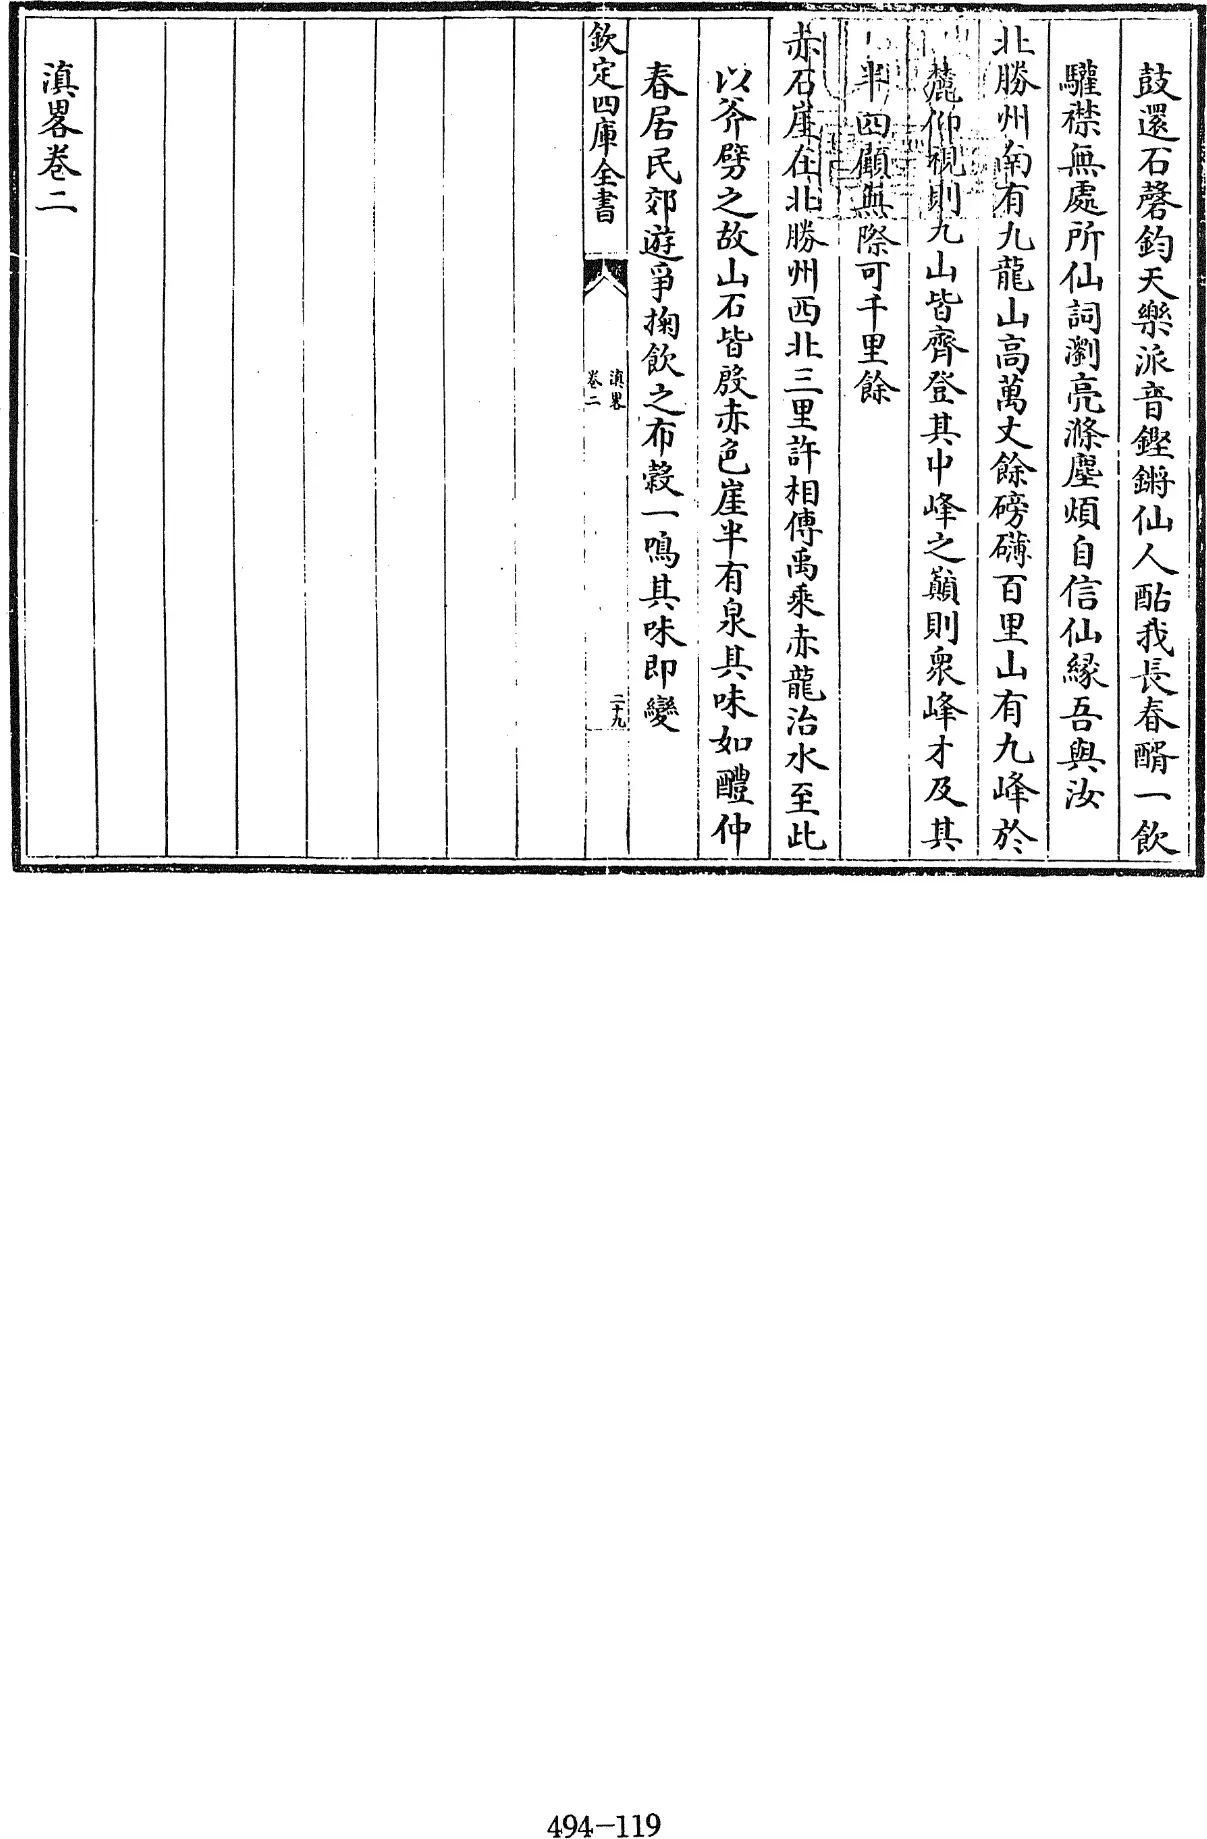 鼓還石磬鈞天樂派音鏗鏘仙人酤我長春醑一飲
驩襟無處所仙詞瀏亮滌塵煩自信仙緣吾與汝
北勝州南有九龍山高萬丈餘磅礴百里山有九峰於
麓仰視則九山皆齊登其中峰之巔則衆峰才及其
半四顧無際可千里餘
赤石崖在北勝州西北三里許相傳禹乘赤龍治水至此
以斧劈之故山石皆殷赤色崖半有泉其味如醴仲
春居民郊遊爭掬飲之布穀一鳴其味即變
欽定四庫全書
滇畧
卷二
二十九
滇畧卷二
494-119